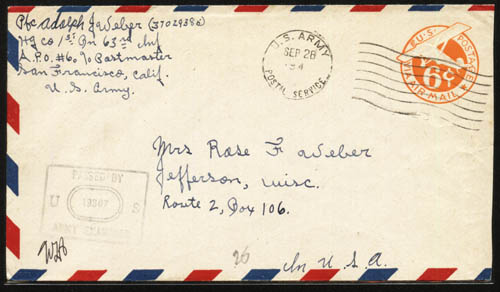 Pfc. Adolph J. Weber (37029386)
Hq Co 1st Bn 63rd Inf
A.P.O. #6 % Postmaster
San Francisco, Calif.
U. S. Army.
U.S. ARMY
SEP 28
194
POSTAL SERVICE
U.S. POSTAGE
6¢
VIA AIR MAIL
Mrs Rose F Weber
Jefferson, Wisc.
Route 2, Box 106.
In U.S.A.
PASSED BY
U 19307 S
ARMY EXAMINER
26